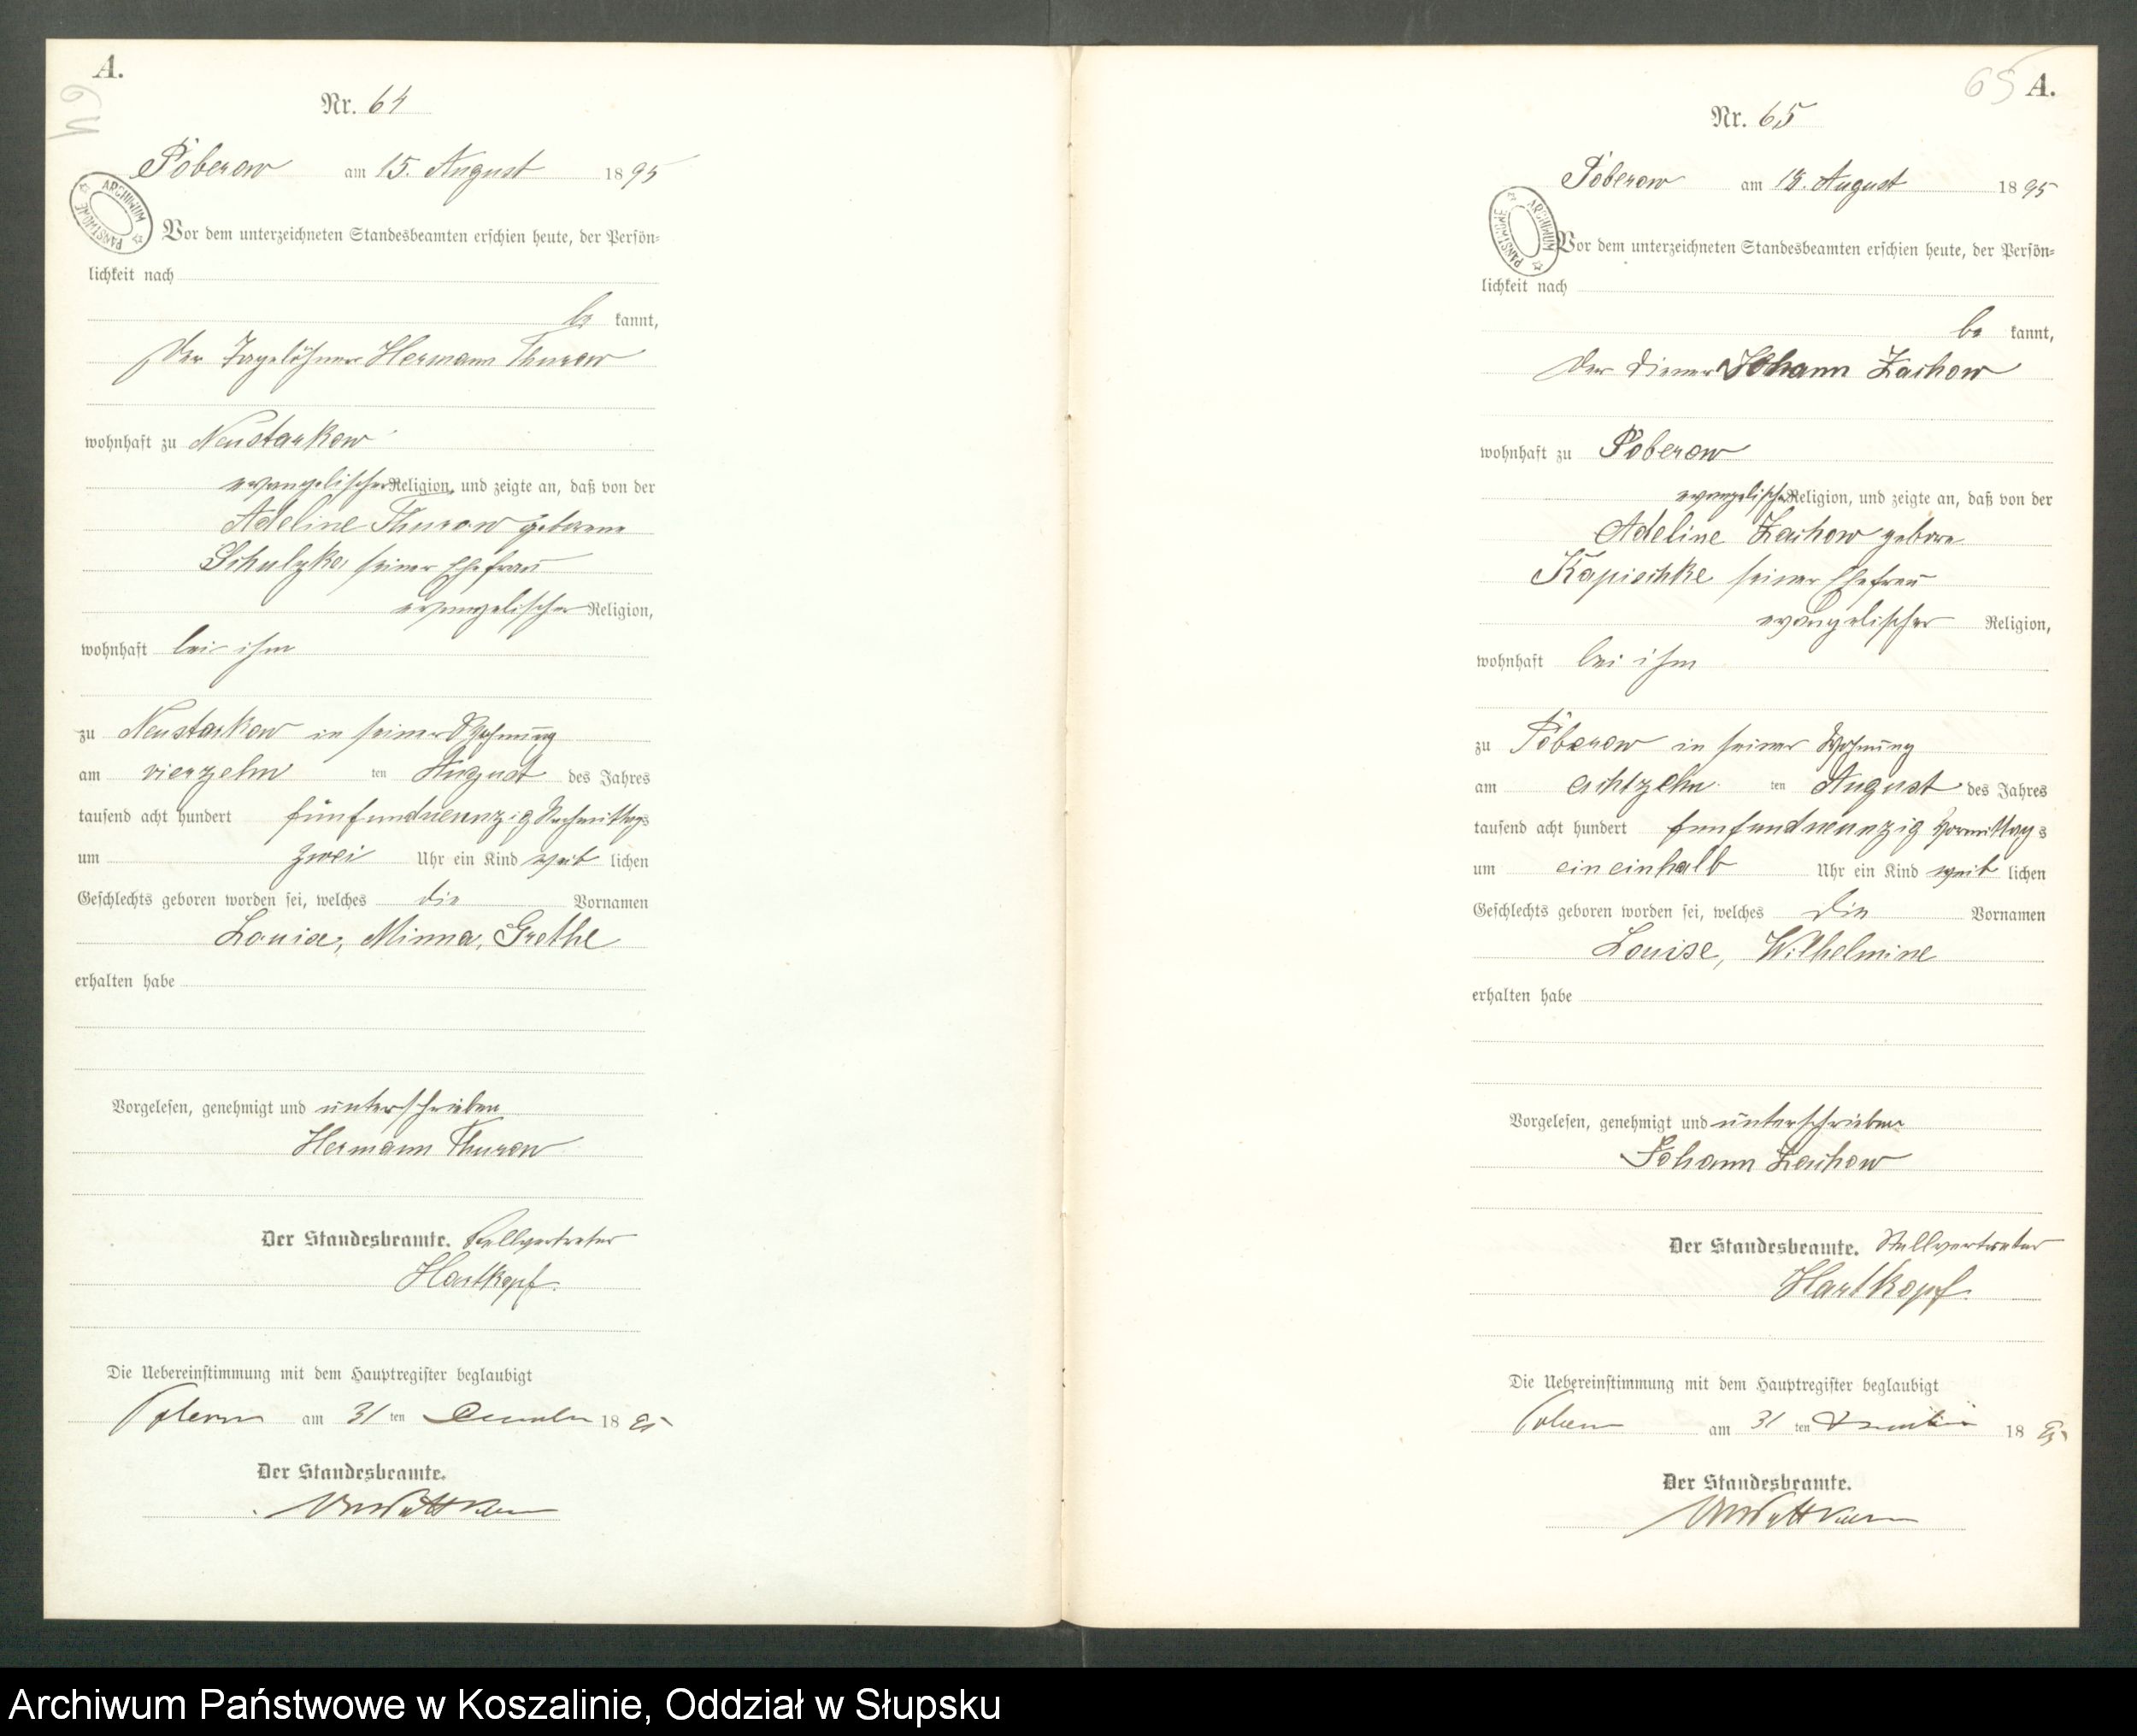 A.
64
Nr. 64
Poberow am 15. August 1895
ARCHIWUM PAŃSTWOWE
Vor dem unterzeichneten Standesbeamten erschien heute, der Persön=
lichkeit nach
be kannt,
der Tagelöhner Hermann Thurow
wohnhaft zu Neustarkow
evangelischer Religion, und zeigte an, daß von der
Adeline Thurow geborene
Schulzke, seiner Ehefrau
evangelischer Religion,
wohnhaft bei ihm
zu Neustarkow in seiner Wohnung
am vierzehn ten August des Jahres
tausend acht hundert fünfundneunzig Nachmittags
um zwei Uhr ein Kind weib lichen
Geschlechts geboren worden sei, welches die Vornamen
Louise, Minna, Grethe
erhalten habe
Vorgelesen, genehmigt und unterschrieben
Hermann Thurow
Der Standesbeamte. Stellvertreter
Hartkopf.
Die Uebereinstimmung mit dem Hauptregister beglaubigt
Poberow am 31 ten Dezember 1895
Der Standesbeamte.
65 A.
Nr. 65
Poberow am 18. August 1895
ARCHIWUM PAŃSTWOWE
Vor dem unterzeichneten Standesbeamten erschien heute, der Persön=
lichkeit nach
be kannt,
der Diener Johann Zachow
wohnhaft zu Poberow
evangelischer Religion, und zeigte an, daß von der
Adeline Zachow geborne
Kapischke seiner Ehefrau
evangelischer Religion,
wohnhaft bei ihm
zu Poberow in seiner Wohnung
am achtzehn ten August des Jahres
tausend acht hundert fünfundneunzig Vormittags
um eineinhalb Uhr ein Kind weib lichen
Geschlechts geboren worden sei, welches die Vornamen
Louise, Wilhelmine
erhalten habe
Vorgelesen, genehmigt und unterschrieben
Johann Zachow
Der Standesbeamte. Stellvertreter
Hartkopf.
Die Uebereinstimmung mit dem Hauptregister beglaubigt
Poberow am 31 ten Dezember 1895
Der Standesbeamte.
Archiwum Państwowe w Koszalinie, Oddział w Słupsku